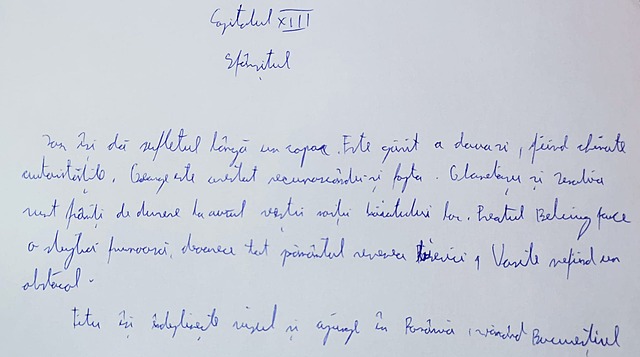 Capitolul XIII
Sfârșitul
Ion își dă sufletul lângă un copac. Este găsit a doua zi, fiind chemate
autoritățile. George este arestat recunoscându-și fapta. Glanetașu și Zenobia
sunt frânți de durere la auzul veștii morții băiatului lor. Preotul Belciug face
o slujbă frumoasă, deoarece tot pământul revenea bisericii, Vasile nefiind un
obstacol.
Titu își îndeplinește visul și ajunge în România, văzând Bucureștiul